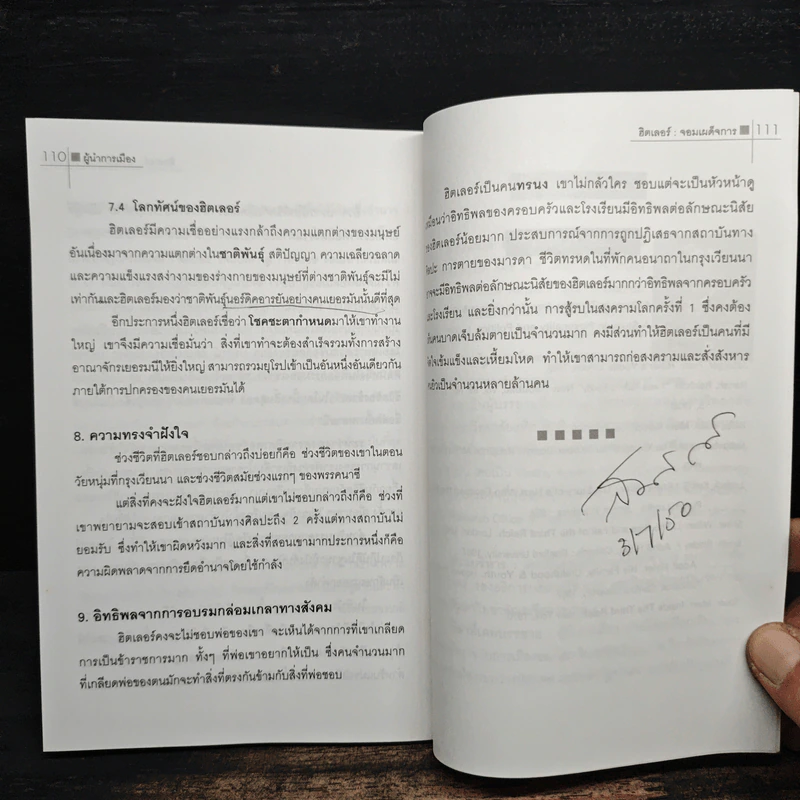 110 ผู้นำการเมือง
7.4 โลกทัศน์ของฮิตเลอร์
ฮิตเลอร์มีความเชื่ออย่างแรงกล้าถึงความแตกต่างของมนุษย์
อันเนื่องมาจากความแตกต่างในชาติพันธุ์ สติปัญญา ความเฉลียวฉลาด
และความแข็งแรงสง่างามของร่างกายของมนุษย์ที่ต่างชาติพันธุ์จะมีไม่
เท่ากันและฮิตเลอร์มองว่าชาติพันธุ์นอร์ดิคอารยันอย่างคนเยอรมันนั้นดีที่สุด
อีกประการหนึ่งฮิตเลอร์เชื่อว่าโชคชะตากำหนดมาให้เขาทำงาน
ใหญ่ เขาจึงมีความเชื่อมั่นว่า สิ่งที่เขาทำจะต้องสำเร็จรวมทั้งการสร้าง
อาณาจักรเยอรมนีให้ยิ่งใหญ่ สามารถรวมยุโรปเข้าเป็นอันหนึ่งอันเดียวกัน
ภายใต้การปกครองของคนเยอรมันได้
8. ความทรงจำฝังใจ
ช่วงชีวิตที่ฮิตเลอร์ชอบกล่าวถึงบ่อยก็คือ ช่วงชีวิตของเขาในตอน
วัยหนุ่มที่กรุงเวียนนา และช่วงชีวิตสมัยช่วงแรกๆ ของพรรคนาซี
แต่สิ่งที่คงจะฝังใจฮิตเลอร์มากแต่เขาไม่ชอบกล่าวถึงก็คือ ช่วงที่
เขาพยายามจะสอบเข้าสถาบันทางศิลปะถึง 2 ครั้งแต่ทางสถาบันไม่
ยอมรับ ซึ่งทำให้เขาผิดหวังมาก และสิ่งที่สอนเขามากประการหนึ่งก็คือ
ความผิดพลาดจากการยึดอำนาจโดยใช้กำลัง
9. อิทธิพลจากการอบรมกล่อมเกลาทางสังคม
ฮิตเลอร์คงจะไม่ชอบพ่อของเขา จะเห็นได้จากการที่เขาเกลียด
การเป็นข้าราชการมาก ทั้งๆ ที่พ่อเขาอยากให้เป็น ซึ่งคนจำนวนมาก
ที่เกลียดพ่อของตนมักจะทำสิ่งที่ตรงกันข้ามกับสิ่งที่พ่อชอบ
ฮิตเลอร์ : จอมเผด็จการ 111
ฮิตเลอร์เป็นคนทรนง เขาไม่กลัวใคร ชอบแต่จะเป็นหัวหน้าดู
เหมือนว่าอิทธิพลของครอบครัวและโรงเรียนมีอิทธิพลต่อลักษณะนิสัย
ของฮิตเลอร์น้อยมาก ประสบการณ์จากการถูกปฏิเสธจากสถาบันทาง
ศิลปะ การตายของมารดา ชีวิตทรหดในที่พักคนอนาถาในกรุงเวียนนา
อาจจะมีอิทธิพลต่อลักษณะนิสัยของฮิตเลอร์มากกว่าอิทธิพลจากครอบครัว
และโรงเรียน และยิ่งกว่านั้น การสู้รบในสงครามโลกครั้งที่ 1 ซึ่งคงต้อง
เห็นคนบาดเจ็บล้มตายเป็นจำนวนมาก คงมีส่วนทำให้ฮิตเลอร์เป็นคนที่มี
จิตใจเข้มแข็งและเหี้ยมโหด ทำให้เขาสามารถก่อสงครามและสั่งสังหาร
คนยิวเป็นจำนวนหลายล้านคน
3/7/50